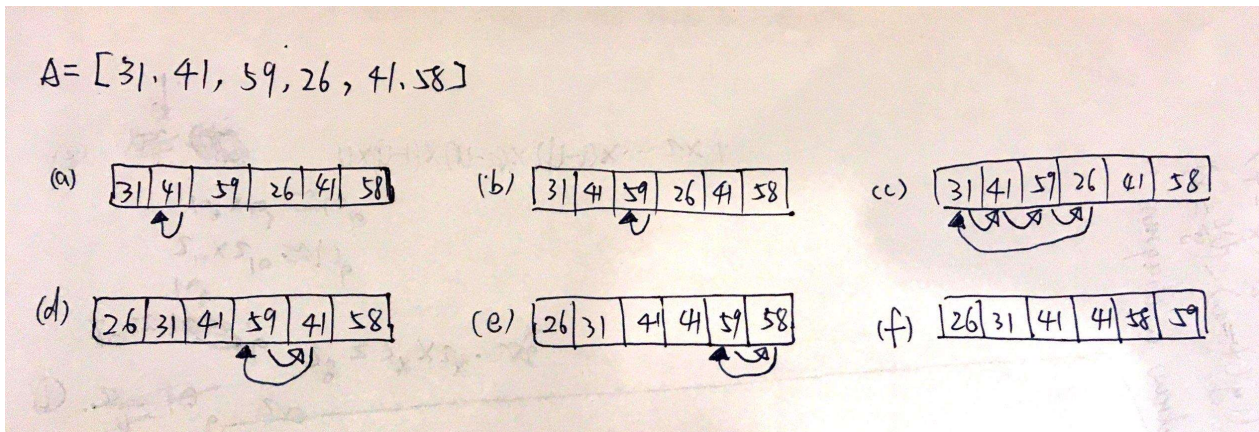 A = [31, 41, 59, 26, 41, 58]
(a) 31 41 59 26 41 58
(b) 31 41 59 26 41 58
(c) 31 41 59 26 41 58
(d) 26 31 41 59 41 58
(e) 26 31 41 41 59 58
(f) 26 31 41 41 58 59